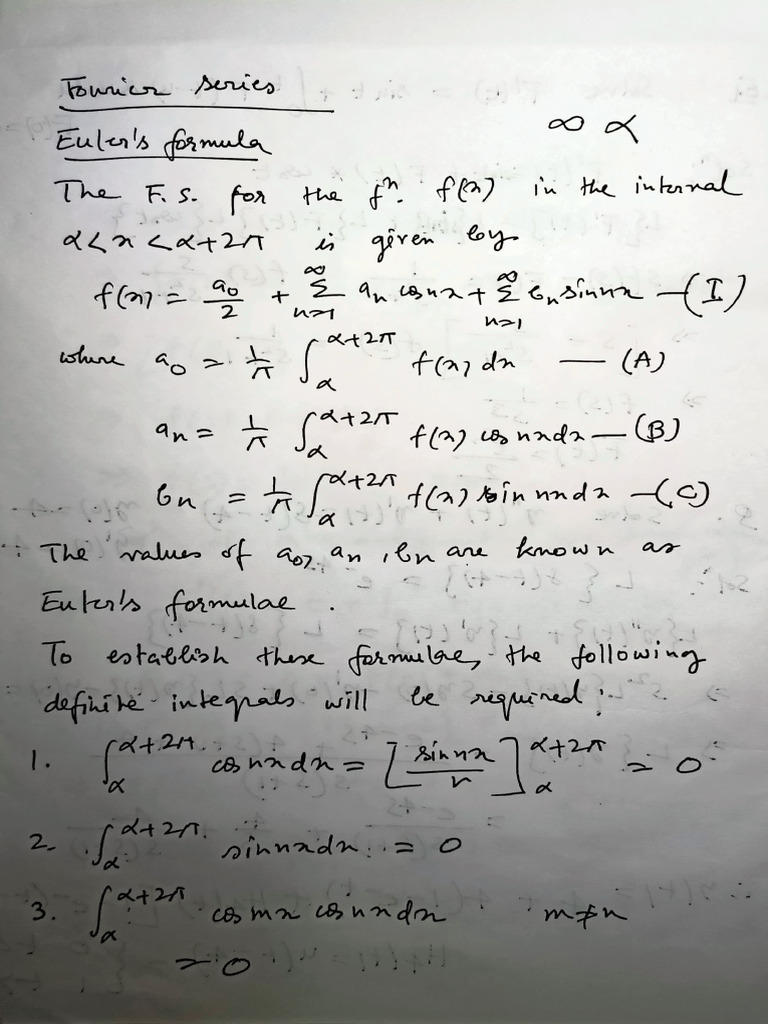 Fourier series
∞ α
Euler's formula
The F. S. for the fⁿ. f(x) in the interval
α<x<α+2π is given by
f(x) = a₀/2 + ∑_{n=1}^{∞} aₙ cosnx + ∑_{n=1}^{∞} bₙ sinnx —(I)
where a₀ = 1/π ∫_α^{α+2π} f(x) dx — (A)
aₙ = 1/π ∫_α^{α+2π} f(x) cosnxdx — (B)
bₙ = 1/π ∫_α^{α+2π} f(x) sin nxdx —(C)
The values of a₀, aₙ, bₙ are known as
Euler's formulae.
To establish these formulae, the following
definite integrals will be required:
1. ∫_α^{α+2π} cosnxdx = [sinnx/n]_α^{α+2π} = 0
2. ∫_α^{α+2π} sinnxdx = 0
3. ∫_α^{α+2π} cosmx cosnxdx m≠n
= 0